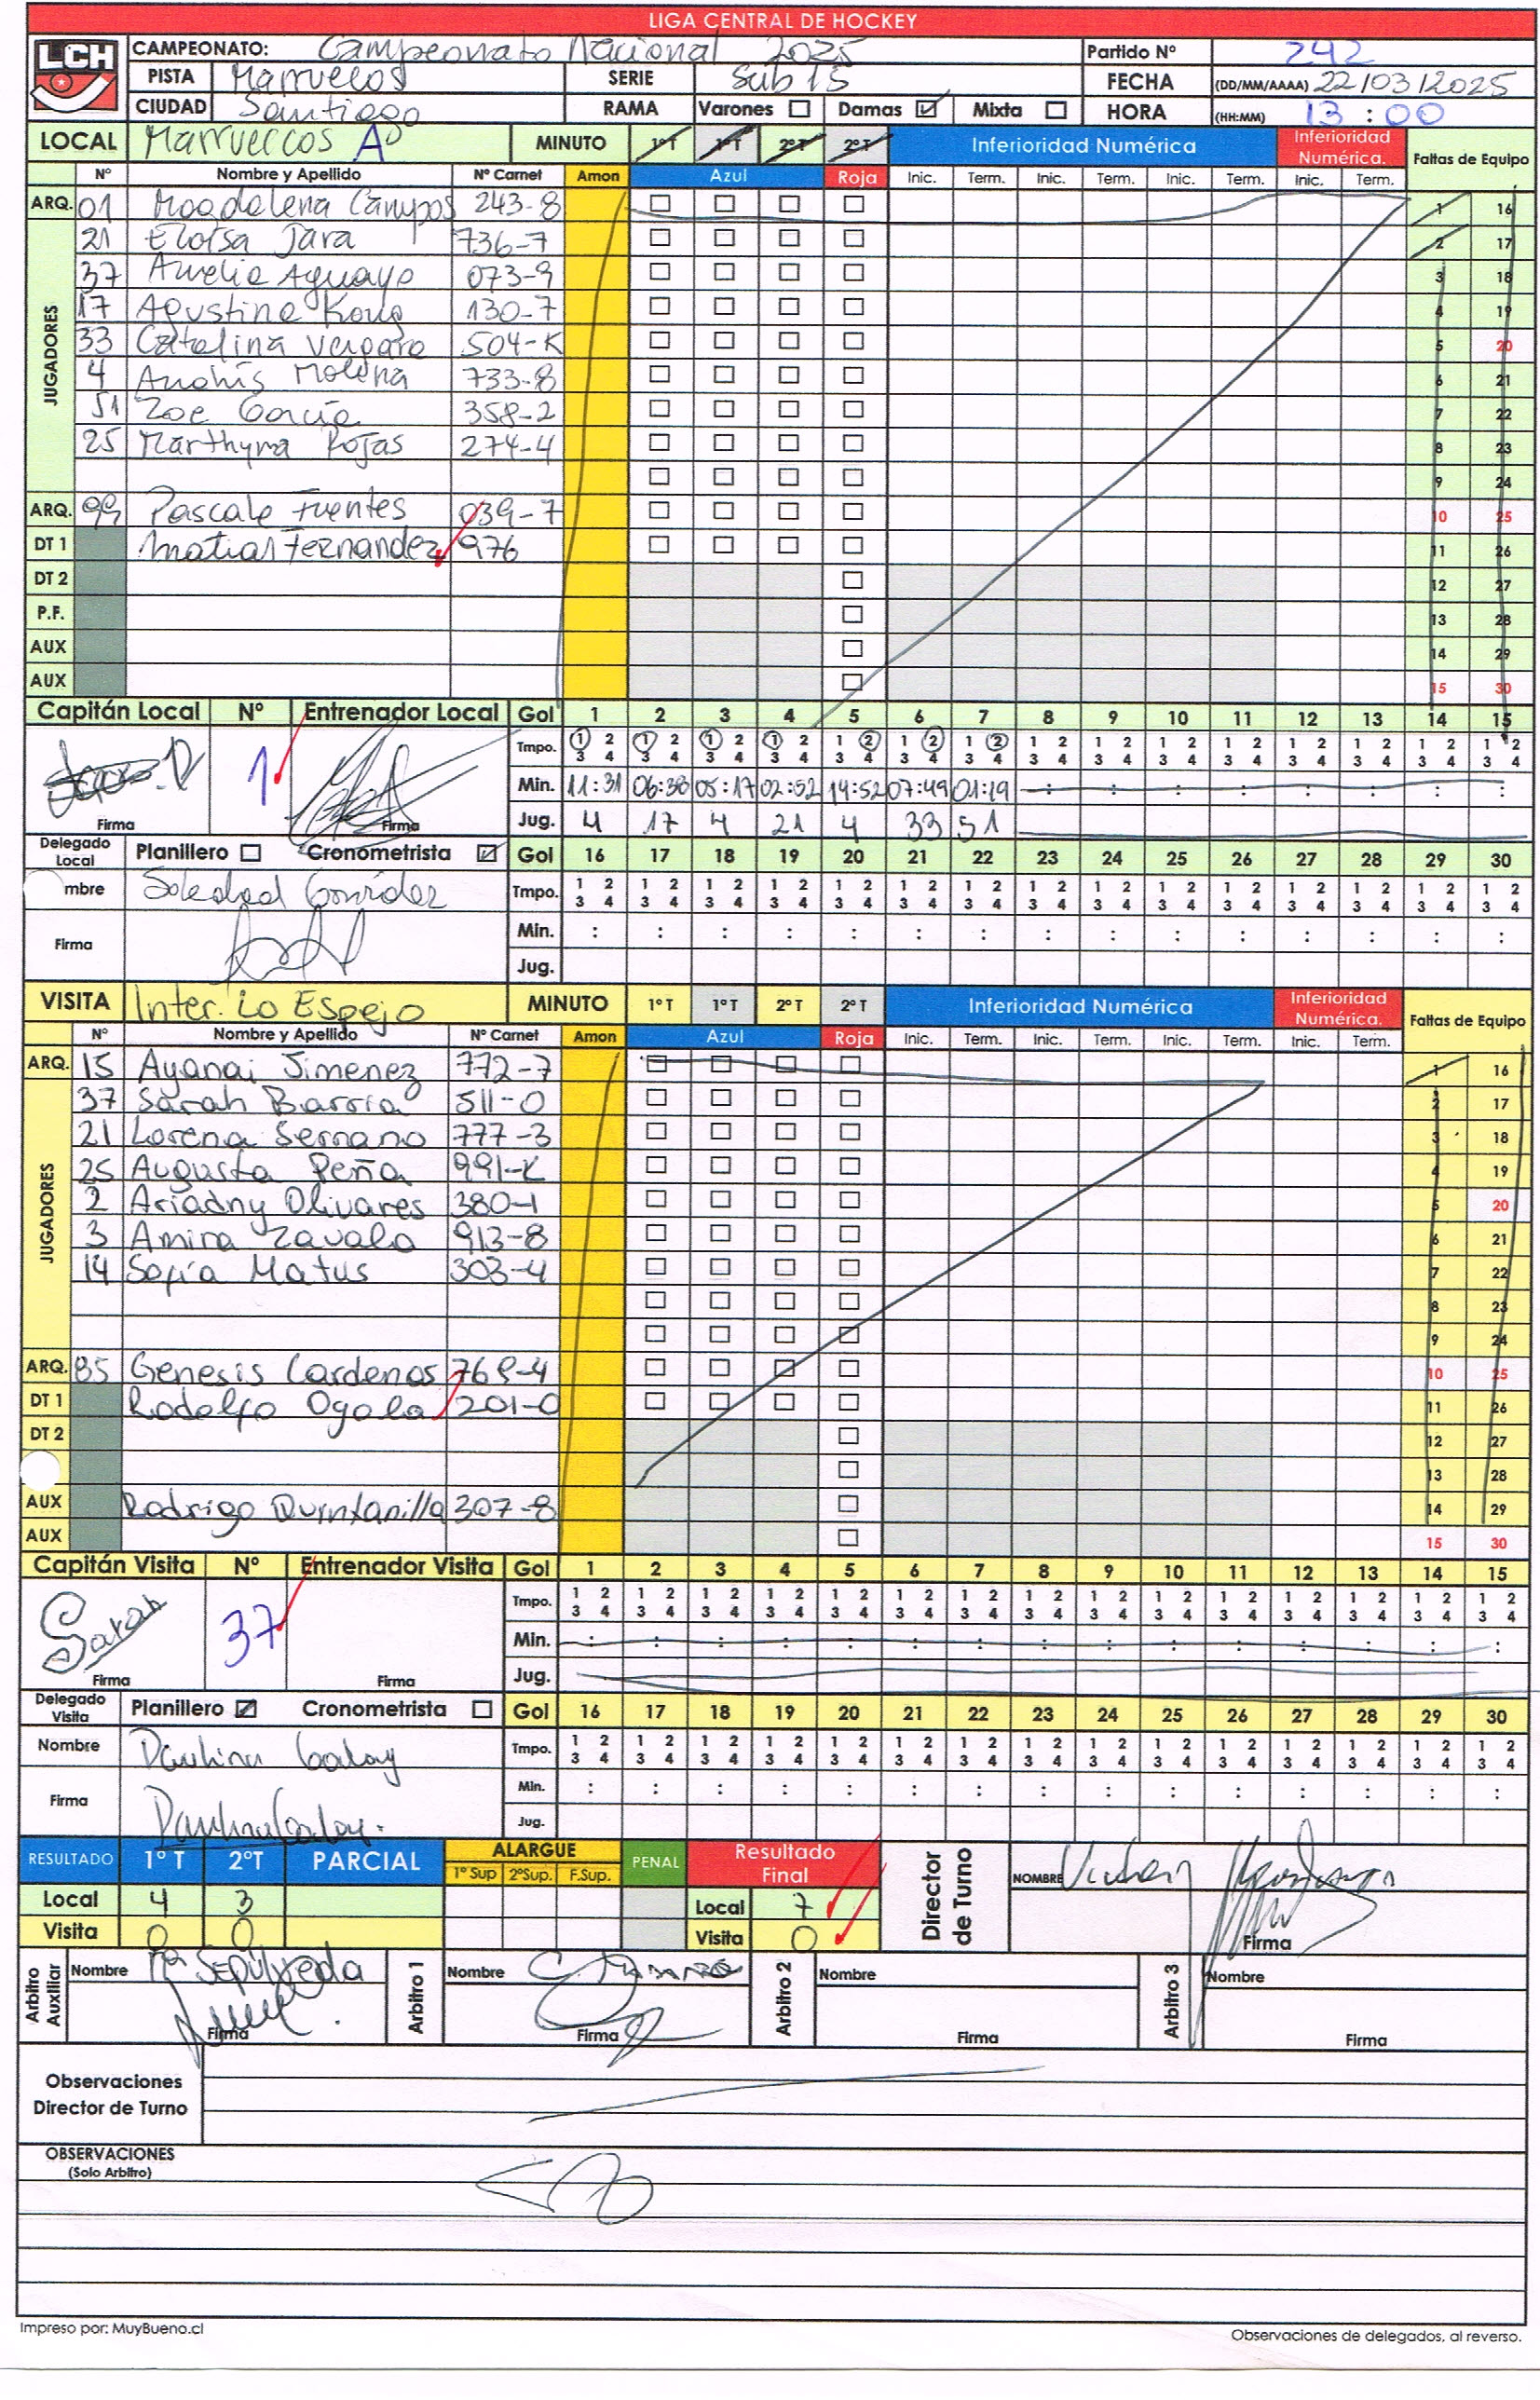 LIGA CENTRAL DE HOCKEY
LCH
CAMPEONATO: Campeonato Nacional 2025 Partido Nº 242
PISTA Marruecos SERIE Sub 15 FECHA (DD/MM/AAAA) 22/03/2025
CIUDAD Santiago RAMA Varones ☐ Damas ☑ Mixta ☐ HORA (HH:MM) 13:00
LOCAL Marruecos A MINUTO 1ºT 1ºT 2ºT 2ºT Inferioridad Numérica Inferioridad Numérica. Faltas de Equipo
Nº Nombre y Apellido Nº Carnet Amon Azul Roja Inic. Term. Inic. Term. Inic. Term. Inic. Term.
ARQ. 01 Magdalena Campos 243-8 1 16
21 Eloísa Jara 736-7 2 17
37 Amelia Aguayo 073-9 3 18
17 Agustina Kong 130-7 4 19
33 Catalina Vergara 504-K 5 20
4 Anahís Molina 733-8 6 21
51 Zoe García 358-2 7 22
25 Marthyna Rojas 274-4 8 23
JUGADORES
9 24
ARQ. 99 Pascale Fuentes 039-7 10 25
DT 1 Matias Fernandez 976 11 26
DT 2 12 27
P.F. 13 28
AUX 14 29
AUX 15 30
Capitán Local Nº Entrenador Local Gol 1 2 3 4 5 6 7 8 9 10 11 12 13 14 15
Tmpo. 1 2 3 4 1 2 3 4 1 2 3 4 1 2 3 4 1 2 3 4 1 2 3 4 1 2 3 4 1 2 3 4 1 2 3 4 1 2 3 4 1 2 3 4 1 2 3 4 1 2 3 4 1 2 3 4 1 2 3 4
1 Min. 11:31 06:38 05:17 02:52 14:52 07:49 01:19 : : : : : : : :
Firma Firma Jug. 4 17 4 21 4 33 51
Delegado Local Planillero ☐ Cronometrista ☑ Gol 16 17 18 19 20 21 22 23 24 25 26 27 28 29 30
mbre Soledad Tmpo. 1 2 3 4 1 2 3 4 1 2 3 4 1 2 3 4 1 2 3 4 1 2 3 4 1 2 3 4 1 2 3 4 1 2 3 4 1 2 3 4 1 2 3 4 1 2 3 4 1 2 3 4 1 2 3 4 1 2 3 4
Firma Min. : : : : : : : : : : : : : : :
Jug.
VISITA Inter. Lo Espejo MINUTO 1ºT 1ºT 2ºT 2ºT Inferioridad Numérica Inferioridad Numérica. Faltas de Equipo
Nº Nombre y Apellido Nº Carnet Amon Azul Roja Inic. Term. Inic. Term. Inic. Term. Inic. Term.
ARQ. 15 Ayanai Jimenez 772-7 1 16
37 Sarah Barria 511-0 2 17
21 Lorena Serrano 777-3 3 18
25 Augusta Peña 991-K 4 19
2 Ariadny Olivares 380-1 5 20
3 Amira Zavala 913-8 6 21
14 Sofía Matus 303-4 7 22
JUGADORES
8 23
9 24
ARQ. 85 Genesis Cardenas 769-4 10 25
DT 1 Rodolfo Ogala 201-0 11 26
DT 2 12 27
13 28
AUX Rodrigo Quintanilla 307-8 14 29
AUX 15 30
Capitán Visita Nº Entrenador Visita Gol 1 2 3 4 5 6 7 8 9 10 11 12 13 14 15
Tmpo. 1 2 3 4 1 2 3 4 1 2 3 4 1 2 3 4 1 2 3 4 1 2 3 4 1 2 3 4 1 2 3 4 1 2 3 4 1 2 3 4 1 2 3 4 1 2 3 4 1 2 3 4 1 2 3 4 1 2 3 4
Sarah 37 Min. : : : : : : : : : : : : : : :
Firma Firma Jug.
Delegado Visita Planillero ☑ Cronometrista ☐ Gol 16 17 18 19 20 21 22 23 24 25 26 27 28 29 30
Nombre Tmpo. 1 2 3 4 1 2 3 4 1 2 3 4 1 2 3 4 1 2 3 4 1 2 3 4 1 2 3 4 1 2 3 4 1 2 3 4 1 2 3 4 1 2 3 4 1 2 3 4 1 2 3 4 1 2 3 4 1 2 3 4
Firma Min. : : : : : : : : : : : : : : :
Jug.
RESULTADO 1º T 2ºT PARCIAL ALARGUE 1º Sup 2ºSup. F.Sup. PENAL Resultado Final Director de Turno NOMBRE
Local 4 3 Local 7
Visita 0 0 Visita 0 Firma
Arbitro Auxiliar Nombre Mª Sepulveda Arbitro 1 Nombre Arbitro 2 Nombre Arbitro 3 Nombre
Firma Firma Firma Firma
Observaciones
Director de Turno
OBSERVACIONES
(Solo Arbitro)
Impreso por: MuyBueno.cl Observaciones de delegados, al reverso.